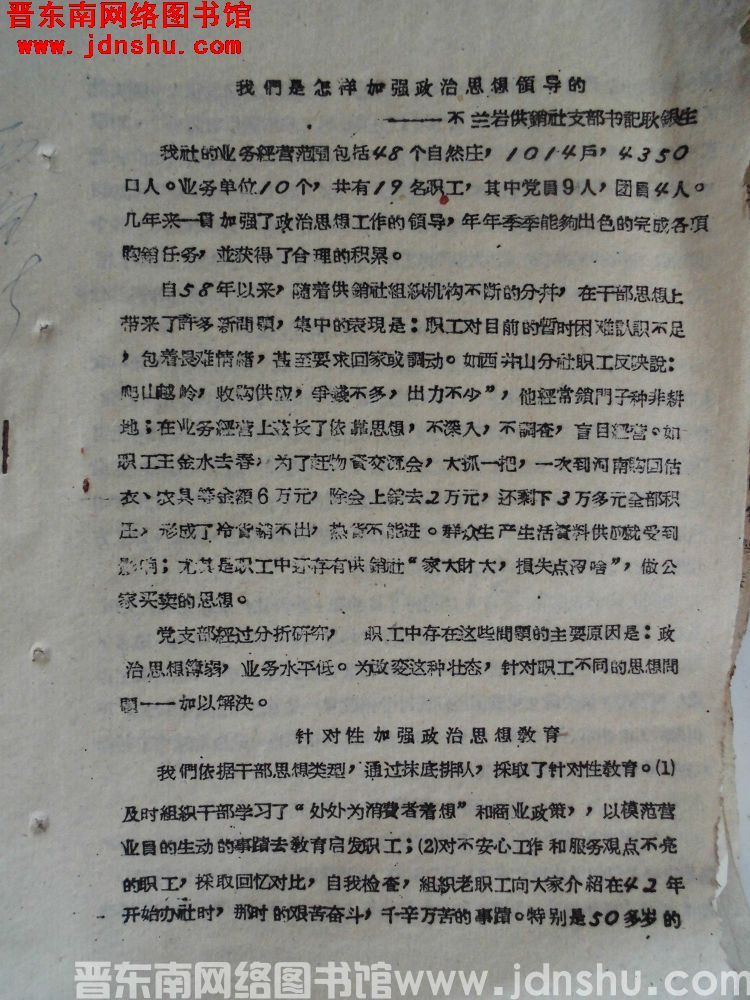 晋东南网络图书馆
www.jdnshu.com
我們是怎样加强政治思想領导的
———不兰岩供銷社支部书記耿銀生
我社的业务經营范围包括48个自然庄，1014戶，4350
口人。业务单位10个，共有19名职工，其中党員9人，团員4人。
几年来一貫加强了政治思想工作的領导，年年季季能夠出色的完成各項
购銷任务，並获得了合理的积累。
自58年以来，随着供銷社組織机构不断的分幷，在干部思想上
带来了許多新問題，集中的表現是：职工对目前的暂时困难认識不足
，包着畏难情緒，甚至要求回家或調动。如西井山分社职工反映說：
爬山越岭，收购供应，爭錢不多，出力不少”，他經常鎖門子种非耕
地；在业务經营上滋长了依靠思想，不深入，不調查，盲目經营。如
职工王金水去春，为了赶物資交流会，大抓一把，一次到河南购回估
衣、农具等金額6万元，除会上銷去2万元，还剩下3万多元全部积
压，形成了冷貨銷不出，热貨不能进。群众生产生活資料供应就受到
影响；尤其是职工中还存有供銷社“家大財大，損失点沒啥”，做公
家买卖的思想。
党支部經过分折研究，职工中存在这些問題的主要原因是：政
治思想薄弱，业务水平低。为改变这种壮态，針对职工不同的思想問
題一一加以解决。
針对性加强政治思想敎育
我們依据干部思想类型，通过抹底排队，採取了針对性敎育。(1)
及时組織干部学习了“处处为消費者着想”和商业政策，，以模范营
业員的生动的事蹟去敎育启发职工；(2)对不安心工作和服务覌点不亮
的职工，採取回忆对比，自我检查，組織老职工向大家介紹在42年
开始办社时，那时的艰苦奋斗，千辛万苦的事蹟。特别是50多岁的
晋东南网络图书馆www.jdnshu.com